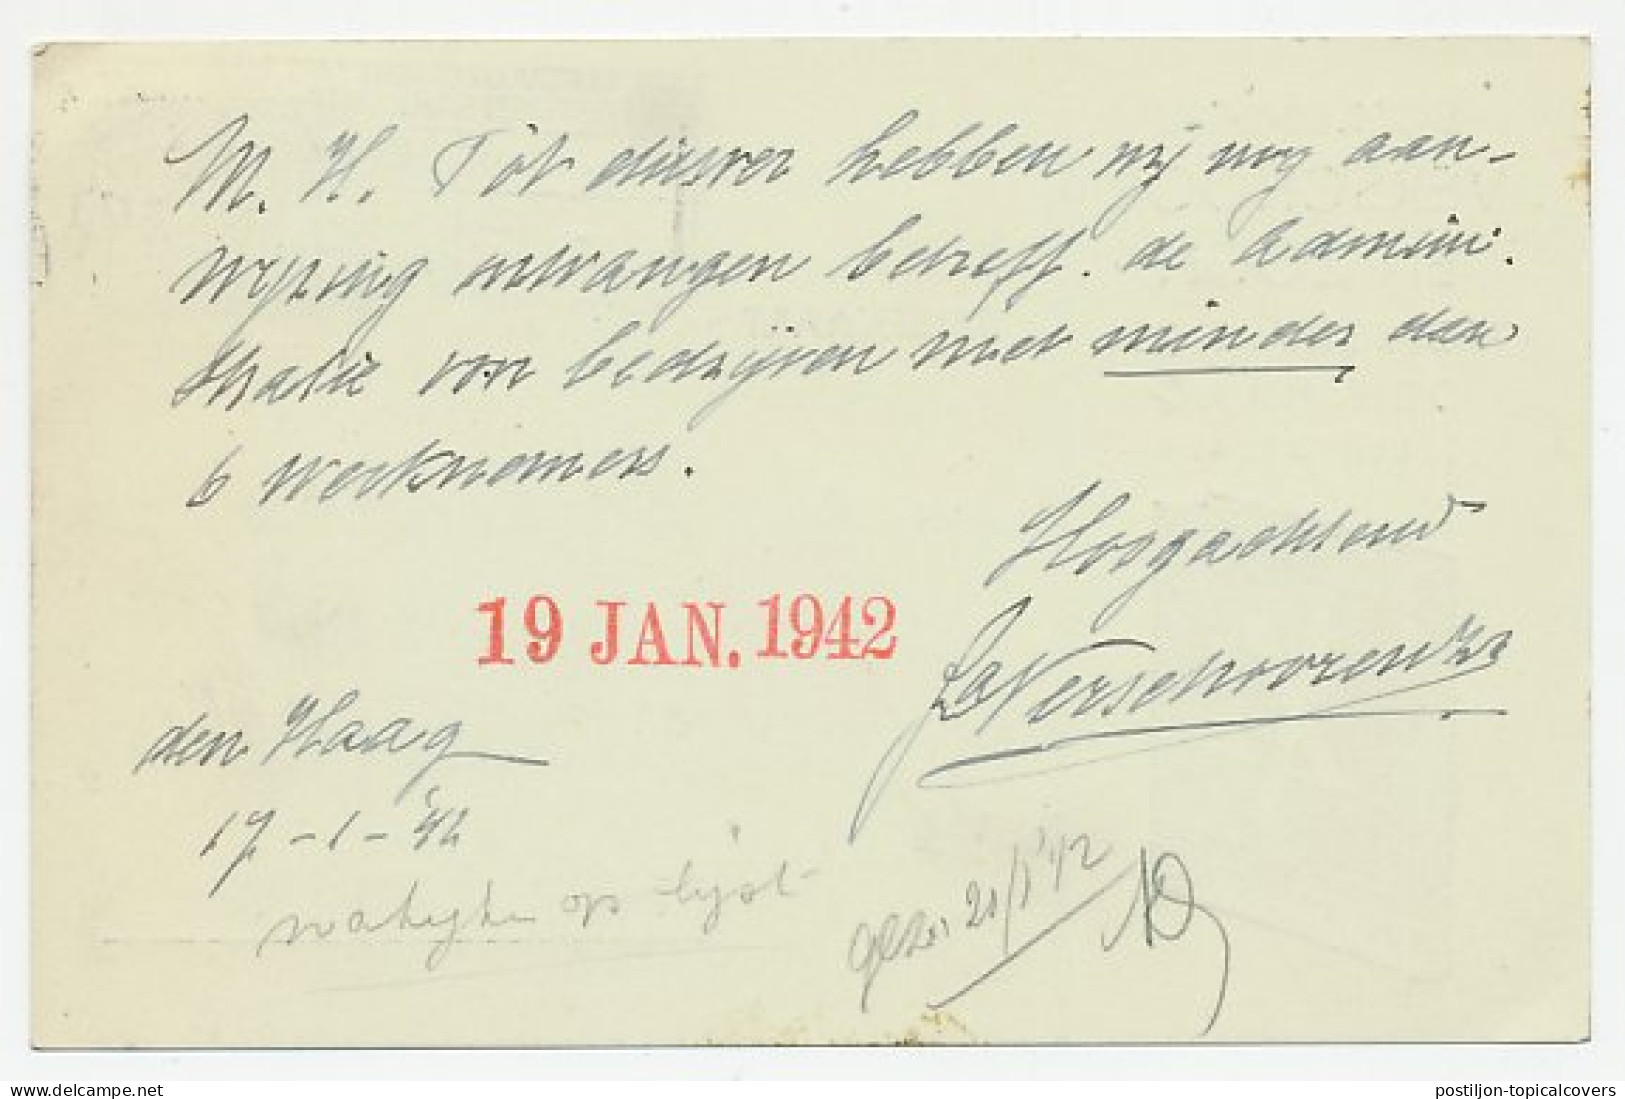 M. H. Tot dusver hebben wij nog aan-
wijzing ontvangen betreff. de admini.
stratie van bedrijven met minder dan
6 werknemers.
Hoogachtend
Verschoor
19 JAN. 1942
den Haag
17-1-'42
op lijst
gezien 21/1 '42
postiljon-topicalcovers
www.delcampe.net